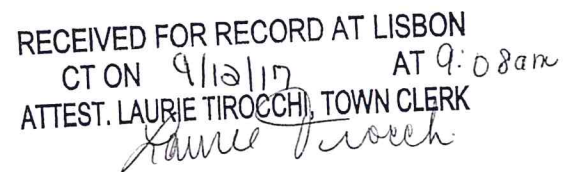 RECEIVED FOR RECORD AT LISBON
CT ON 9/12/17 AT 9:08am
ATTEST. LAURIE TIROCCHI, TOWN CLERK
Laurie Tirocchi